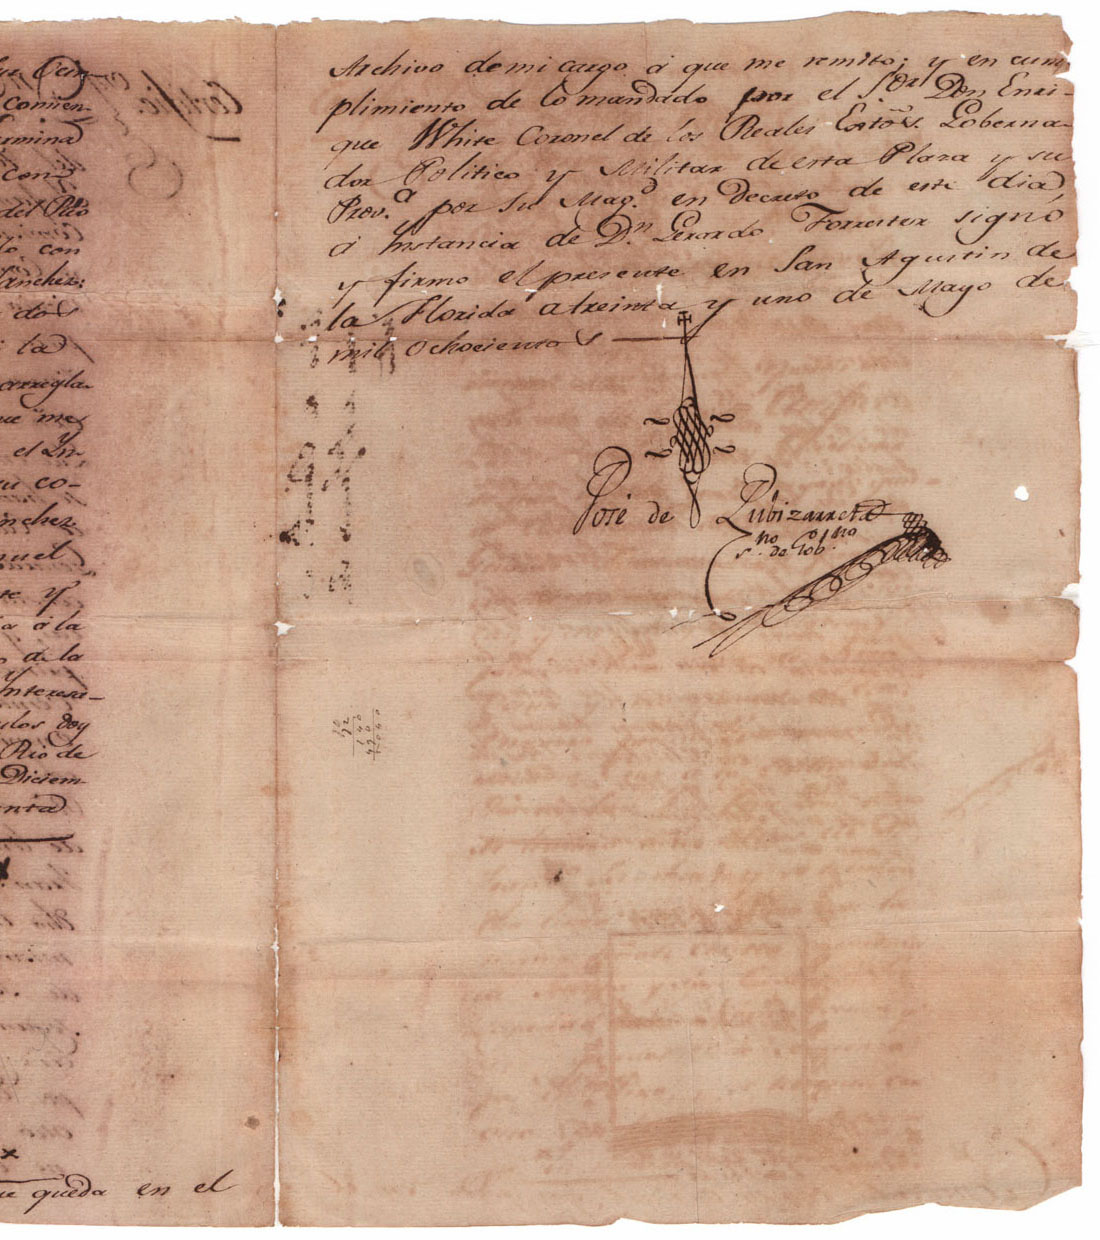 comien-
con-
del Rio
lo con
Sanchez;
dos
la
arregla-
que me
y
el In-
su co-
nchez
nuel
y
a á la
de la
y
interesa-
doy
Rio de
Diciem-
enta
x
x
queda en el
Certific.
Archivo de mi cargo á que me remito; y en cum
plimiento de lo mandado por el S.or Don Enri-
que White Coronel de los Reales Exto.s Goberna-
dor Politico y Militar de esta Plaza y su
Prov.a y por Su Mag.d en Decreto de este dia
á Instancia de D.n Gerardo Forrester signó,
y firmo el presente en San Agustin de
la Florida a treinta y uno de Mayo de
mil ochocientos
José de Zubizarreta
s.no de Gob.no